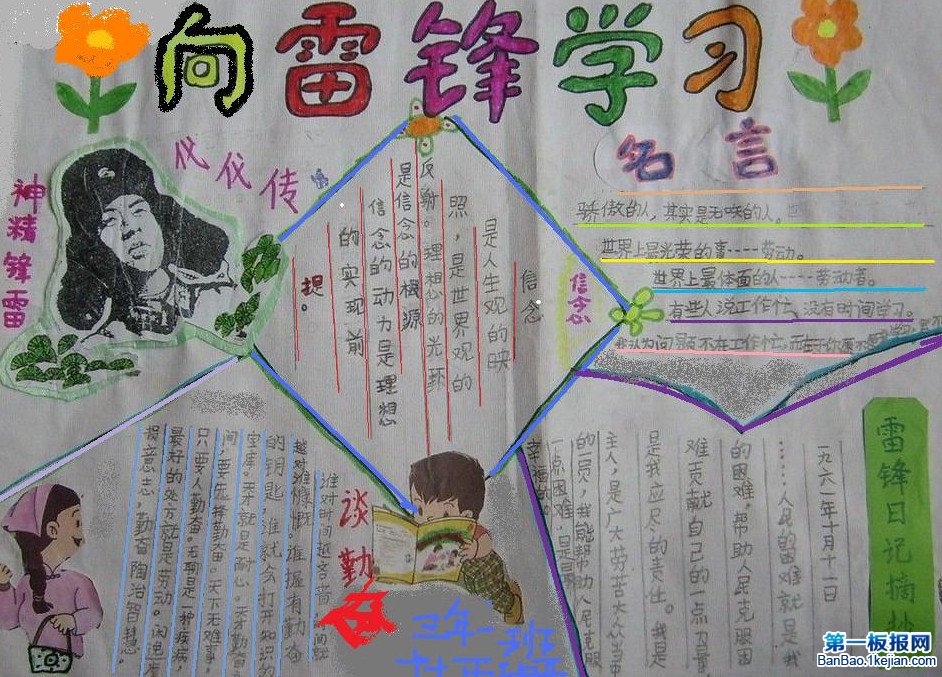 向雷锋学习
代代传
神精锋雷
名言
骄傲的人，其实是无味的人。
世界上最光荣的事----劳动。
世界上最体面的人----劳动者。
有些人说工作忙、没有时间学习。
我认为问题不在工作忙，而在于你愿不
信念
信念
是人生观的映
照，是世界观的
反射。理想的光环
是信念的根源
信念的动力是理想
的实现前
提。
谈勤
谁对时间越吝啬，时间
越对谁慷慨。谁握有勤奋
的钥匙，谁就会打开知识的
宝库。天才就是耐心。天才勤奋
间，要选择勤奋。天下无难事
只要人勤奋。无聊是一种疾病
最好的处方就是劳动。闲
损意志，勤奋陶冶智慧。
三年一班
雷锋日记摘抄
一九六一年十月十一日
……人民的困难就是我
的困难，帮助人民克服困
难贡献自己的一点力量
是我应尽的责任。我是
主人，是广大劳苦大众当
的一员，我能帮助人民克服
一点困难，是最
幸福的。
第一板报网
BanBao.1kejian.com